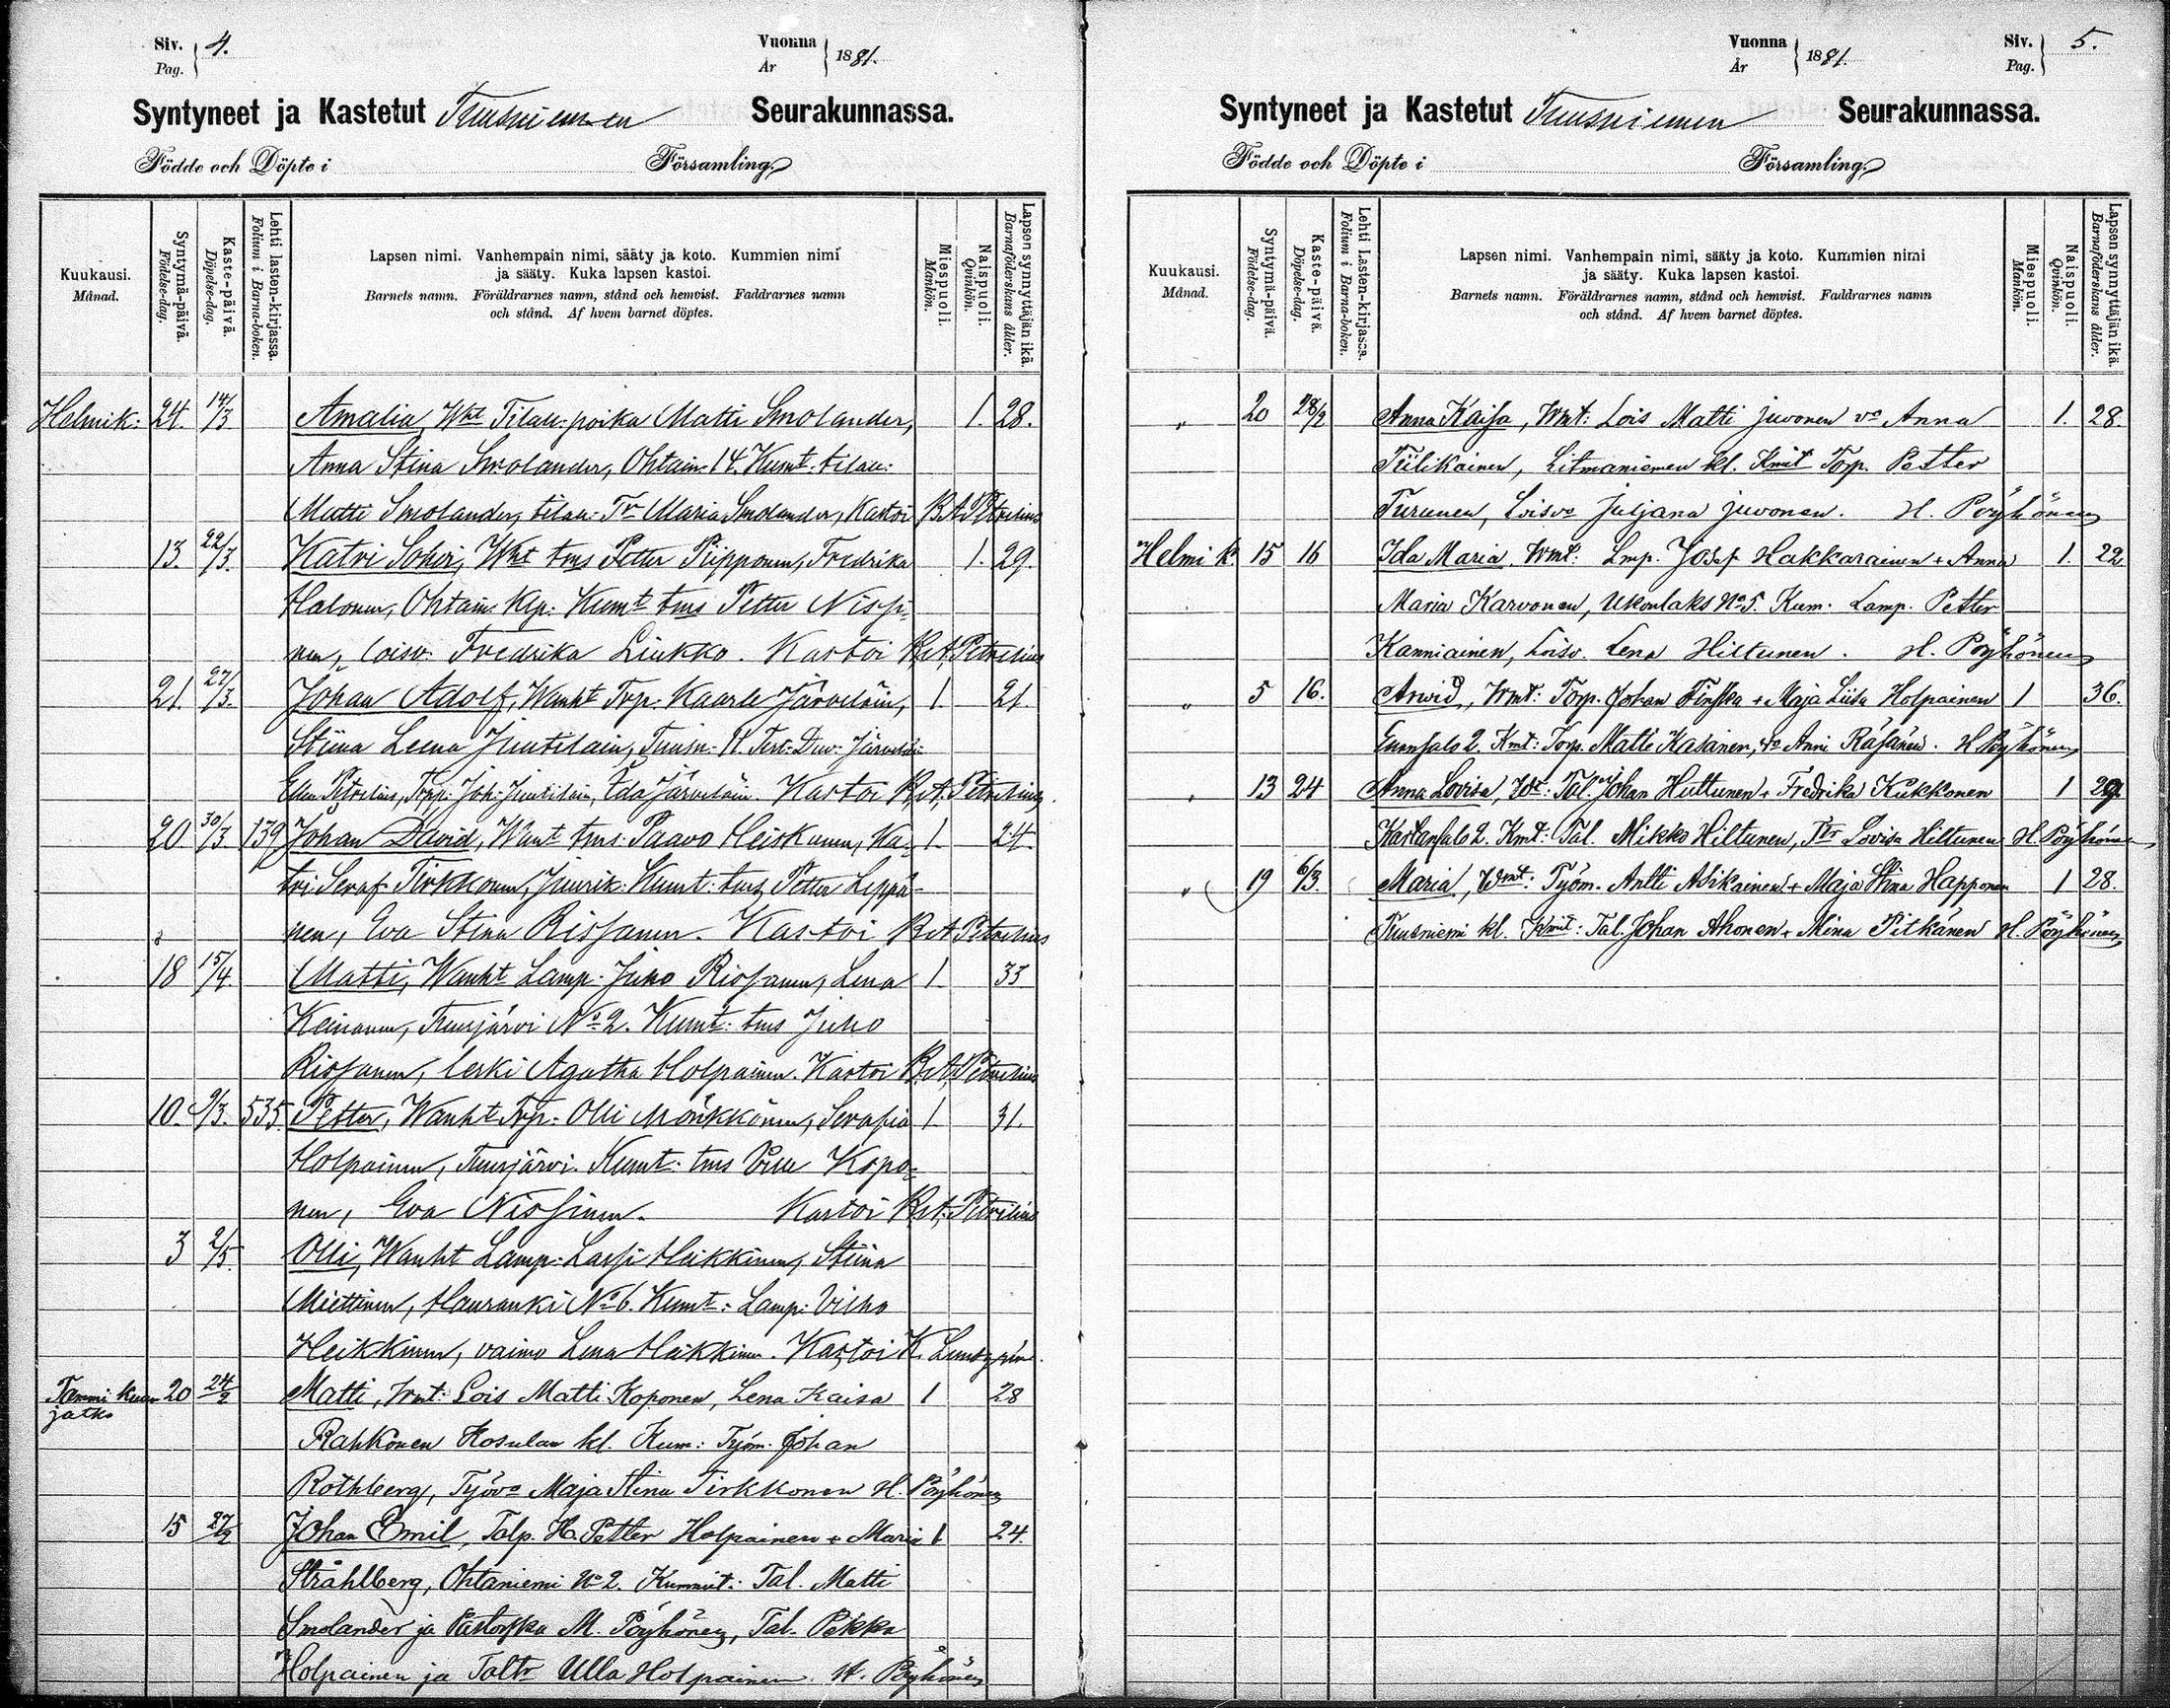 Siv. Pag. 4. Vuonna År 1881.
Syntyneet ja Kastetut Tuusniemen Seurakunnassa.
Födde och Döpte i Församling.
Kuukausi. Månad.
Syntymä-päivä. Födelse-dag.
Kaste-päivä. Döpelse-dag.
Lehti lasten-kirjassa. Folium i Barna-boken.
Lapsen nimi. Vanhempain nimi, sääty ja koto. Kummien nimi
ja sääty. Kuka lapsen kastoi.
Barnets namn. Föräldrarnes namn, stånd och hemvist. Faddrarnes namn
och stånd. Af hvem barnet döptes.
Miespuoli. Mankön.
Naispuoli. Qvinkön.
Lapsen synnyttäjän ikä. Barnaföderskans ålder.
Helmik: 24. 14/3 Amalia, Wht Tilall: poika Matti Smolander, 1. 28.
Anna Stina Smolander, Ohtain. 14. Kumt. tilall:
Matti Smolander, tilall: Tr Maria Smolander, Kastoi K.A. Petrelius
13. 22/3. Katri Sohvi, Wht tms Petter Piipponen, Fredrika 1. 29.
Halonen, Ohtain. Klp. Kumt tms Petter Nissi-
nen, loisv. Fredrika Liukko. Kastoi K.A. Petrelius
21. 27/3. Johan Adolf, Wanht Trp. Kaarle Järveläin, 1. 21.
Stiina Leena Juutilain,
Petrelius, Joh: Juutilain, Ida Järveläin. Kastoi K.A. Petrelius
20 30/3. 139 Johan David, Wanht tms. Paavo Heiskanen, Ka- 1. 24.
tri Seraf. Tirkkonen, Juurik: Kumt: tms Petter Leppä-
nen, Eva Stina Rissanen. Kastoi K.A. Petrelius
18 15/4. Matti, Wanht Lamp. Juho Rissanen, Lena 1. 33
Keinanen, Tuusjärvi No 2. Kumt: tms Juho
Rissanen, leski Agatha Holpainen. Kastoi K.A. Petrelius
10. 9/3. 535. Petter, Wanht Trp: Olli Mönkkönen, Serafia 1. 31.
Holpainen, Tuusjärvi. Kumt: tms Ville Kopo-
nen, Eva Nissinen. Kastoi K.A. Petrelius
3 2/5. Olli, Wanht Lamp: Lassi Heikkinen, Stiina
Miettinen, Hauranki No 6. Kumt: Lamp: Vilho
Heikkinen, vaimo Lena Heikkinen. Kastoi K.
Tammi kuun jatko 20 24/2 Matti, Wmt: Lois Matti Koponen, Lena Kaisa 1 28
Rahkonen Kosulan kl. Kum: Työm. Johan
Rothberg, Työva Maja Stina Tirkkonen H. Pöyhönen
15 27/2 Johan Emil, Talp. H. Petter Holpainen + Maria 1 24.
Ståhlberg, Ohtaniemi No 2. Kummit: Tal. Matti
Smolander ja Pastorska M. Pöyhönen, Tal. Pekka
Holpainen ja Taltr Ulla Holpainen. H. Pöyhönen
Vuonna År 1881. Siv. Pag. 5.
Syntyneet ja Kastetut Tuusniemen Seurakunnassa.
Födde och Döpte i Församling.
Kuukausi. Månad.
Syntymä-päivä. Födelse-dag.
Kaste-päivä. Döpelse-dag.
Lehti Lasten-kirjassa. Folium i Barna-boken.
Lapsen nimi. Vanhempain nimi, sääty ja koto. Kummien nimi
ja sääty. Kuka lapsen kastoi.
Barnets namn. Föräldrarnes namn, stånd och hemvist. Faddrarnes namn
och stånd. Af hvem barnet döptes.
Miespuoli. Mankön.
Naispuoli. Qvinkön.
Lapsen synnyttäjän ikä. Barnaföderskans ålder.
" 20 28/2 Anna Kaisa, Wmt: Lois Matti Juvonen va Anna 1. 28.
Tiilikainen, Litmaniemen kl. Kmit Torp. Petter
Turunen, Loisva Juljana Juvonen. H. Pöyhönen
Helmi k. 15 16 Ida Maria, Wmt: Lmp. Josef Hakkarainen + Anna 1. 22.
Maria Karvonen, Ukonlaks No 5. Kum. Lamp. Petter
Kanniainen, Loisv. Lena Hiltunen. H. Pöyhönen
" 5 16. Arwid, Wmt: Torp. Johan Finska + Maja Liisa Holpainen 1 36.
Enonsalo 2. Kmt: Torp. Matti Kasanen, va Anni Räsänen. H Pöyhönen
" 13 24 Anna Lovisa, Tal. Johan Huttunen + Fredrika Kukkonen 1 29.
Kartansalo 2. Kmt: Tal. Mikko Hiltunen, Ttr Lovisa Hiltunen H. Pöyhönen
" 19 6/3. Maria, Wmt: Työm. Antti Asikainen + Maja Stina Happonen 1 28.
Tuusniemi kl. Kmit: Tal. Johan Ahonen + Mina Pitkänen H. Pöyhönen